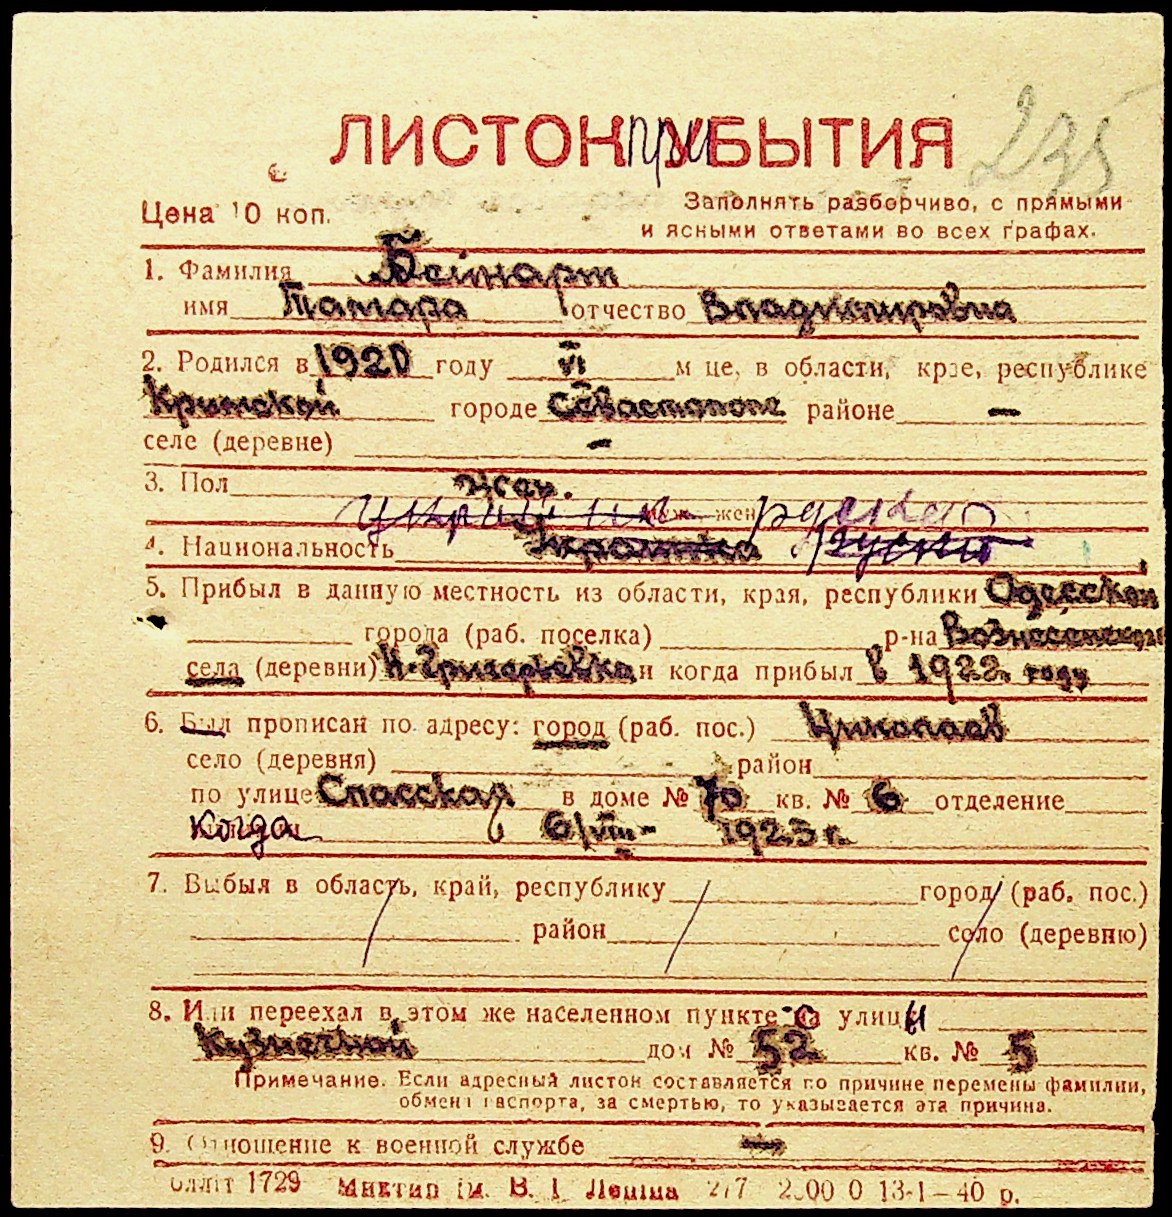 ЛИСТОК при УБЫТИЯ 235
Цена 10 коп. Заполнять разборчиво, с прямыми
и ясными ответами во всех графах.
1. Фамилия Бейнарт
имя Тамара отчество Владимировна
2. Родился в 1920 году VI м це, в области, крае, республике
Кримской городе Севастополе районе —
селе (деревне) —
3. Пол Жен.
муж. жен.
4. Национальность Украинка
5. Прибыл в данную местность из области, края, республики Одесской
города (раб. поселка) р-на Вознесенского
села (деревни) Н-Григорьевка и когда прибыл в 1922 году
6. Был прописан по адресу: город (раб. пос.) Николаев
село (деревня) район
по улице Спасская в доме № 70 кв. № 6 отделение
когда 6/VIII- 1923 г.
7. Выбыл в область, край, республику город (раб. пос.)
район село (деревню)
8. Или переехал в этом же населенном пункте с улицы
Кузнечной дом № 52 кв. № 5
Примечание. Если адресный листок составляется по причине перемены фамилии,
обмена паспорта, за смертью, то указывается эта причина.
9. Отношение к военной службе —
1729 Миктип Ім. В. І. Леніна 13-1-40 р.